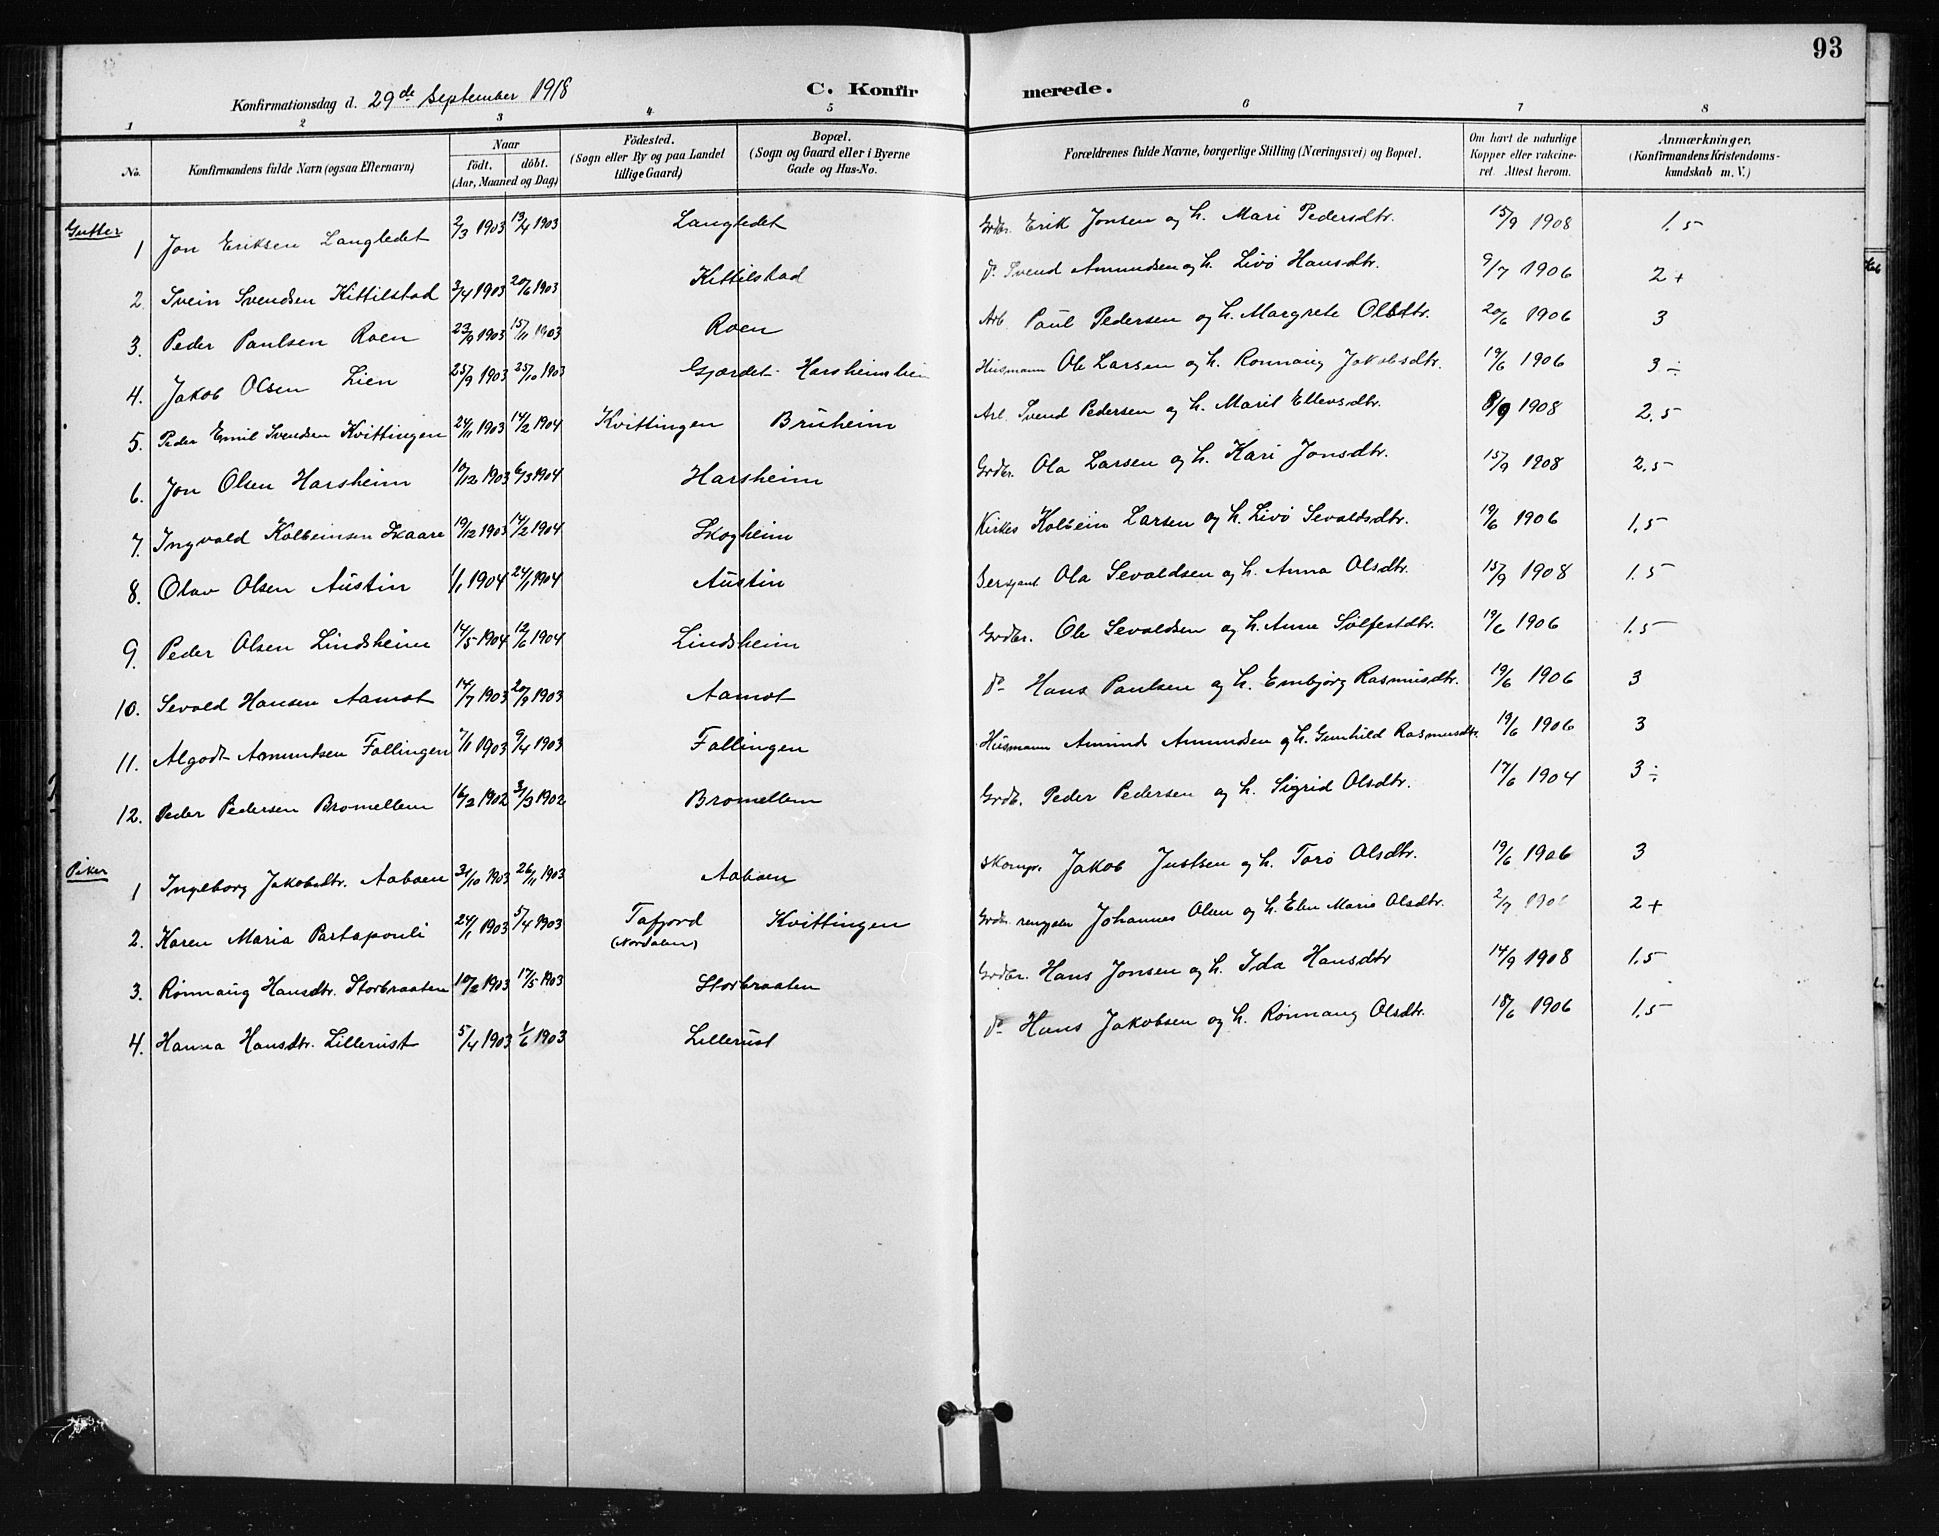 93
Konfirmationsdag d. 29de September 1918 C. Konfir merede.
1 2 3 4 5 6 7 8
No. Konfirmandens fulde Navn (ogsaa Efternavn) Naar födt. döbt. (Aar, Maaned og Dag) Födested. (Sogn eller By og paa Landet tillige Gaard) Bopæl. (Sogn og Gaard eller i Byerne Gade og Hus-No. Forældrenes fulde Navne, borgerlige Stilling (Næringsvei) og Bopæl. Om havt de naturlige Kopper eller vakcineret. Attest herom. Anmærkninger. (Konfirmandens Kristendomskundskab m. V.)
Gutter
1 Jon Eriksen Langledet 2/3 1903 13/4 1903 Langledet Grdbr. Erik Jonsen og h. Mari Pedersdtr. 15/9 1908 1.5
2. Svein Svendsen Kittilstad 3/4 1903 20/6 1903 Kittilstad do Svend Amundsen og h. Livö Hansdtr. 9/7 1906 2+
3. Peder Paulsen Roen 23/9 1903 15/11 1903 Roen Arb. Paul Pedersen og h. Margrete Olsdtr. 20/6 1906 3
4. Jakob Olsen Lien 25/9 1903 25/10 1903 Gjærdet Harsheimslien Husmann Ole Larsen og h. Rønnaug Jakobsdtr. 19/6 1906 3÷
5. Peder Emil Svendsen Kvittingen 24/11 1903 14/2 1904 Kvittingen Bruheim Arb. Svend Pedersen og h. Marit Ellevsdtr. 8/9 1908 2.5
6. Jon Olsen Harsheim 10/12 1903 6/3 1904 Harsheim Grdbr. Ola Larsen og h. Kari Jonsdtr. 15/9 1908 2.5
7. Ingvald Kolbeinsen Skaare 19/12 1903 14/2 1904 Skogheim Kirkes Kolbein Larsen og h. Livö Sevaldsdtr. 19/6 1906 1.5
8. Olav Olsen Austin 1/1 1904 24/1 1904 Austin Sersjant Ola Sevaldsen og h. Anna Olsdtr. 15/9 1908 1.5
9. Peder Olsen Lindsheim 14/5 1904 12/6 1904 Lindsheim Grdbr. Ole Sevaldsen og h. Anne Sölfestdtr. 19/6 1906 1.5
10. Sevald Hansen Aamot 14/7 1903 20/9 1903 Aamot do Hans Paulsen og h. Embjørg Rasmusdtr. 19/6 1906 3
11. Algodt Amundsen Fallingen 7/1 1903 9/4 1903 Fallingen Husmann Amund Amundsen og h. Gunhild Rasmusdtr. 19/6 1906 3
12. Peder Pedersen Bromellem 16/2 1902 31/3 1902 Bromellem Grdb. Peder Pedersen og h. Sigrid Olsdtr. 17/6 1904 3÷
Piker
1 Ingeborg Jakobsdtr. Aaboen 31/10 1903 26/11 1903 Aaboen Skomr. Jakob Justsen og h. Torö Olsdtr. 19/6 1906 3
2. Karen Maria Partapouli 24/1 1903 5/4 1903 Tafjord (Nordalen) Kvittingen Grdbr. Johannes Olsen og h. Elen Marie Olsdtr. 2/7 1906 2+
3. Rønnaug Hansdtr. Storbraaten 10/2 1903 17/5 1903 Storbraaten Grdbr. Hans Jonsen og h. Ida Hansdtr 14/9 1908 1.5
4. Hanna Hansdtr. Lillerust 5/4 1903 1/6 1903 Lillerust do Hans Jakobsen og h. Rønnaug Olsdtr. 18/6 1906 1.5